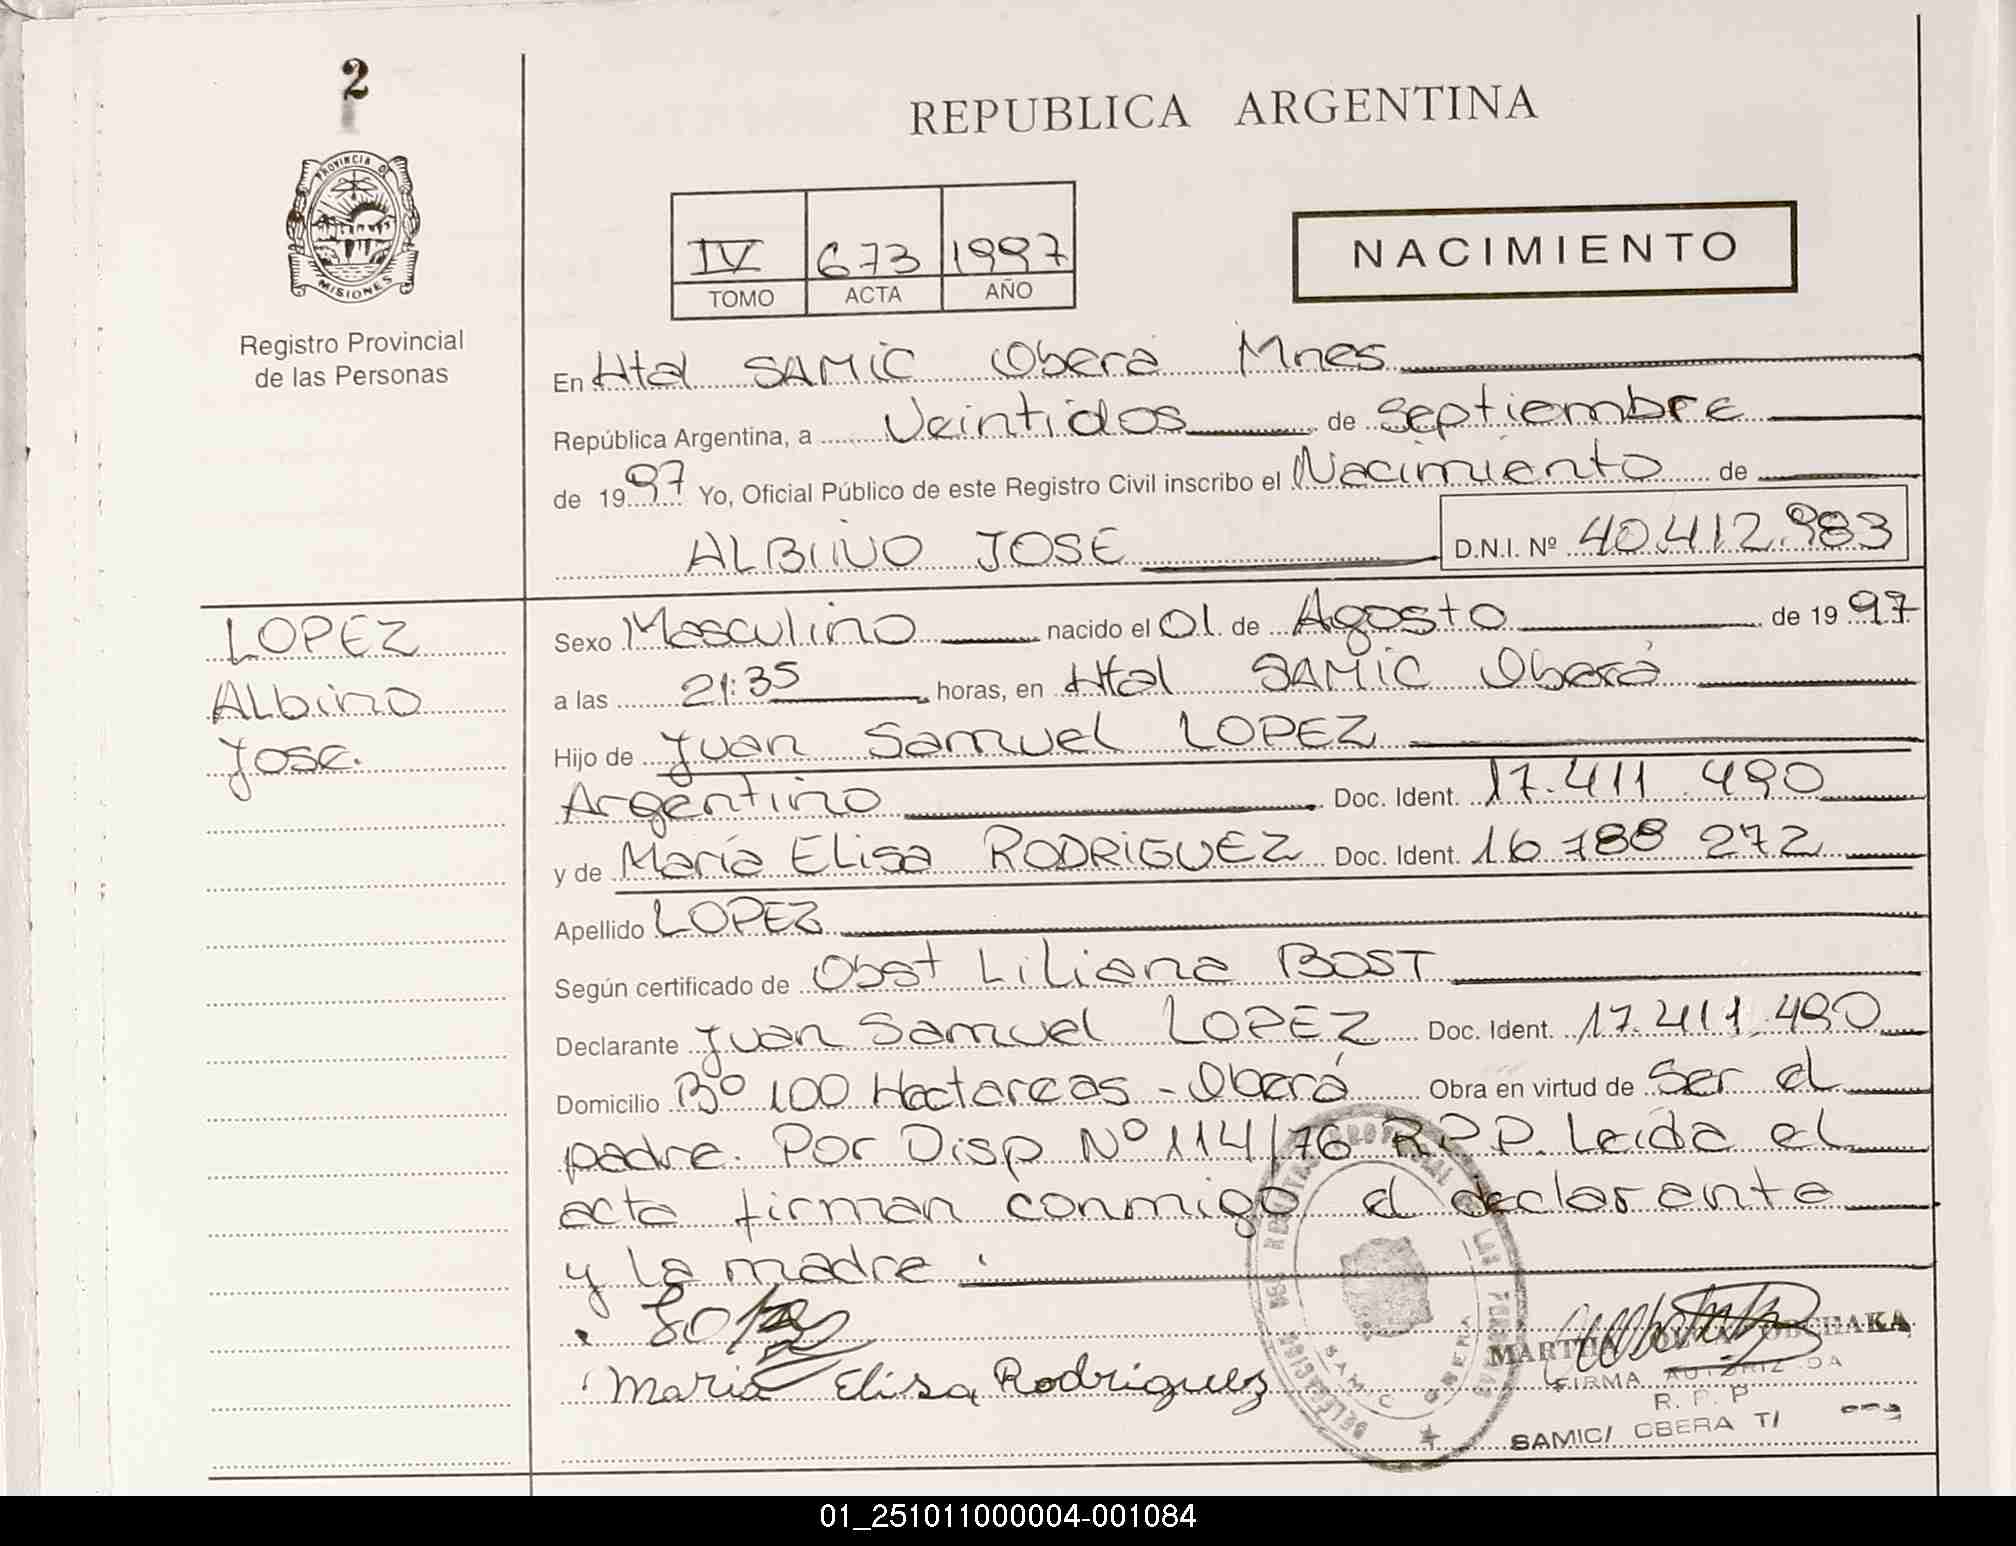 2
PROVINCIA DE
MISIONES
Registro Provincial
de las Personas
REPUBLICA ARGENTINA
IV 673 1997
TOMO ACTA AÑO
NACIMIENTO
En Htal SAMIC Oberá Mnes
República Argentina, a Veintidos de Septiembre
de 1997 Yo, Oficial Público de este Registro Civil inscribo el Nacimiento de
ALBINO JOSE D.N.I. Nº 40.412.983
LOPEZ
Albino
Jose.
Sexo Masculino nacido el 01 de Agosto de 1997
a las 21:35 horas, en Htal SAMIC Oberá
Hijo de Juan Samuel LOPEZ
Argentino Doc. Ident. 17.411.490
y de María Elisa RODRIGUEZ Doc. Ident. 16 788 272
Apellido LOPEZ
Según certificado de Obst Liliana BOST
Declarante Juan Samuel LOPEZ Doc. Ident. 17.411.490
Domicilio Bº 100 Hectareas - Oberá Obra en virtud de Ser el
padre. Por Disp Nº 114/76 R.P.P. Leída el
acta firman conmigo el declarante
y la madre.
Maria Elisa Rodriguez
MARTHA
FIRMA AUTORIZADA
R. P. P
SAMIC/ OBERA
01_251011000004-001084